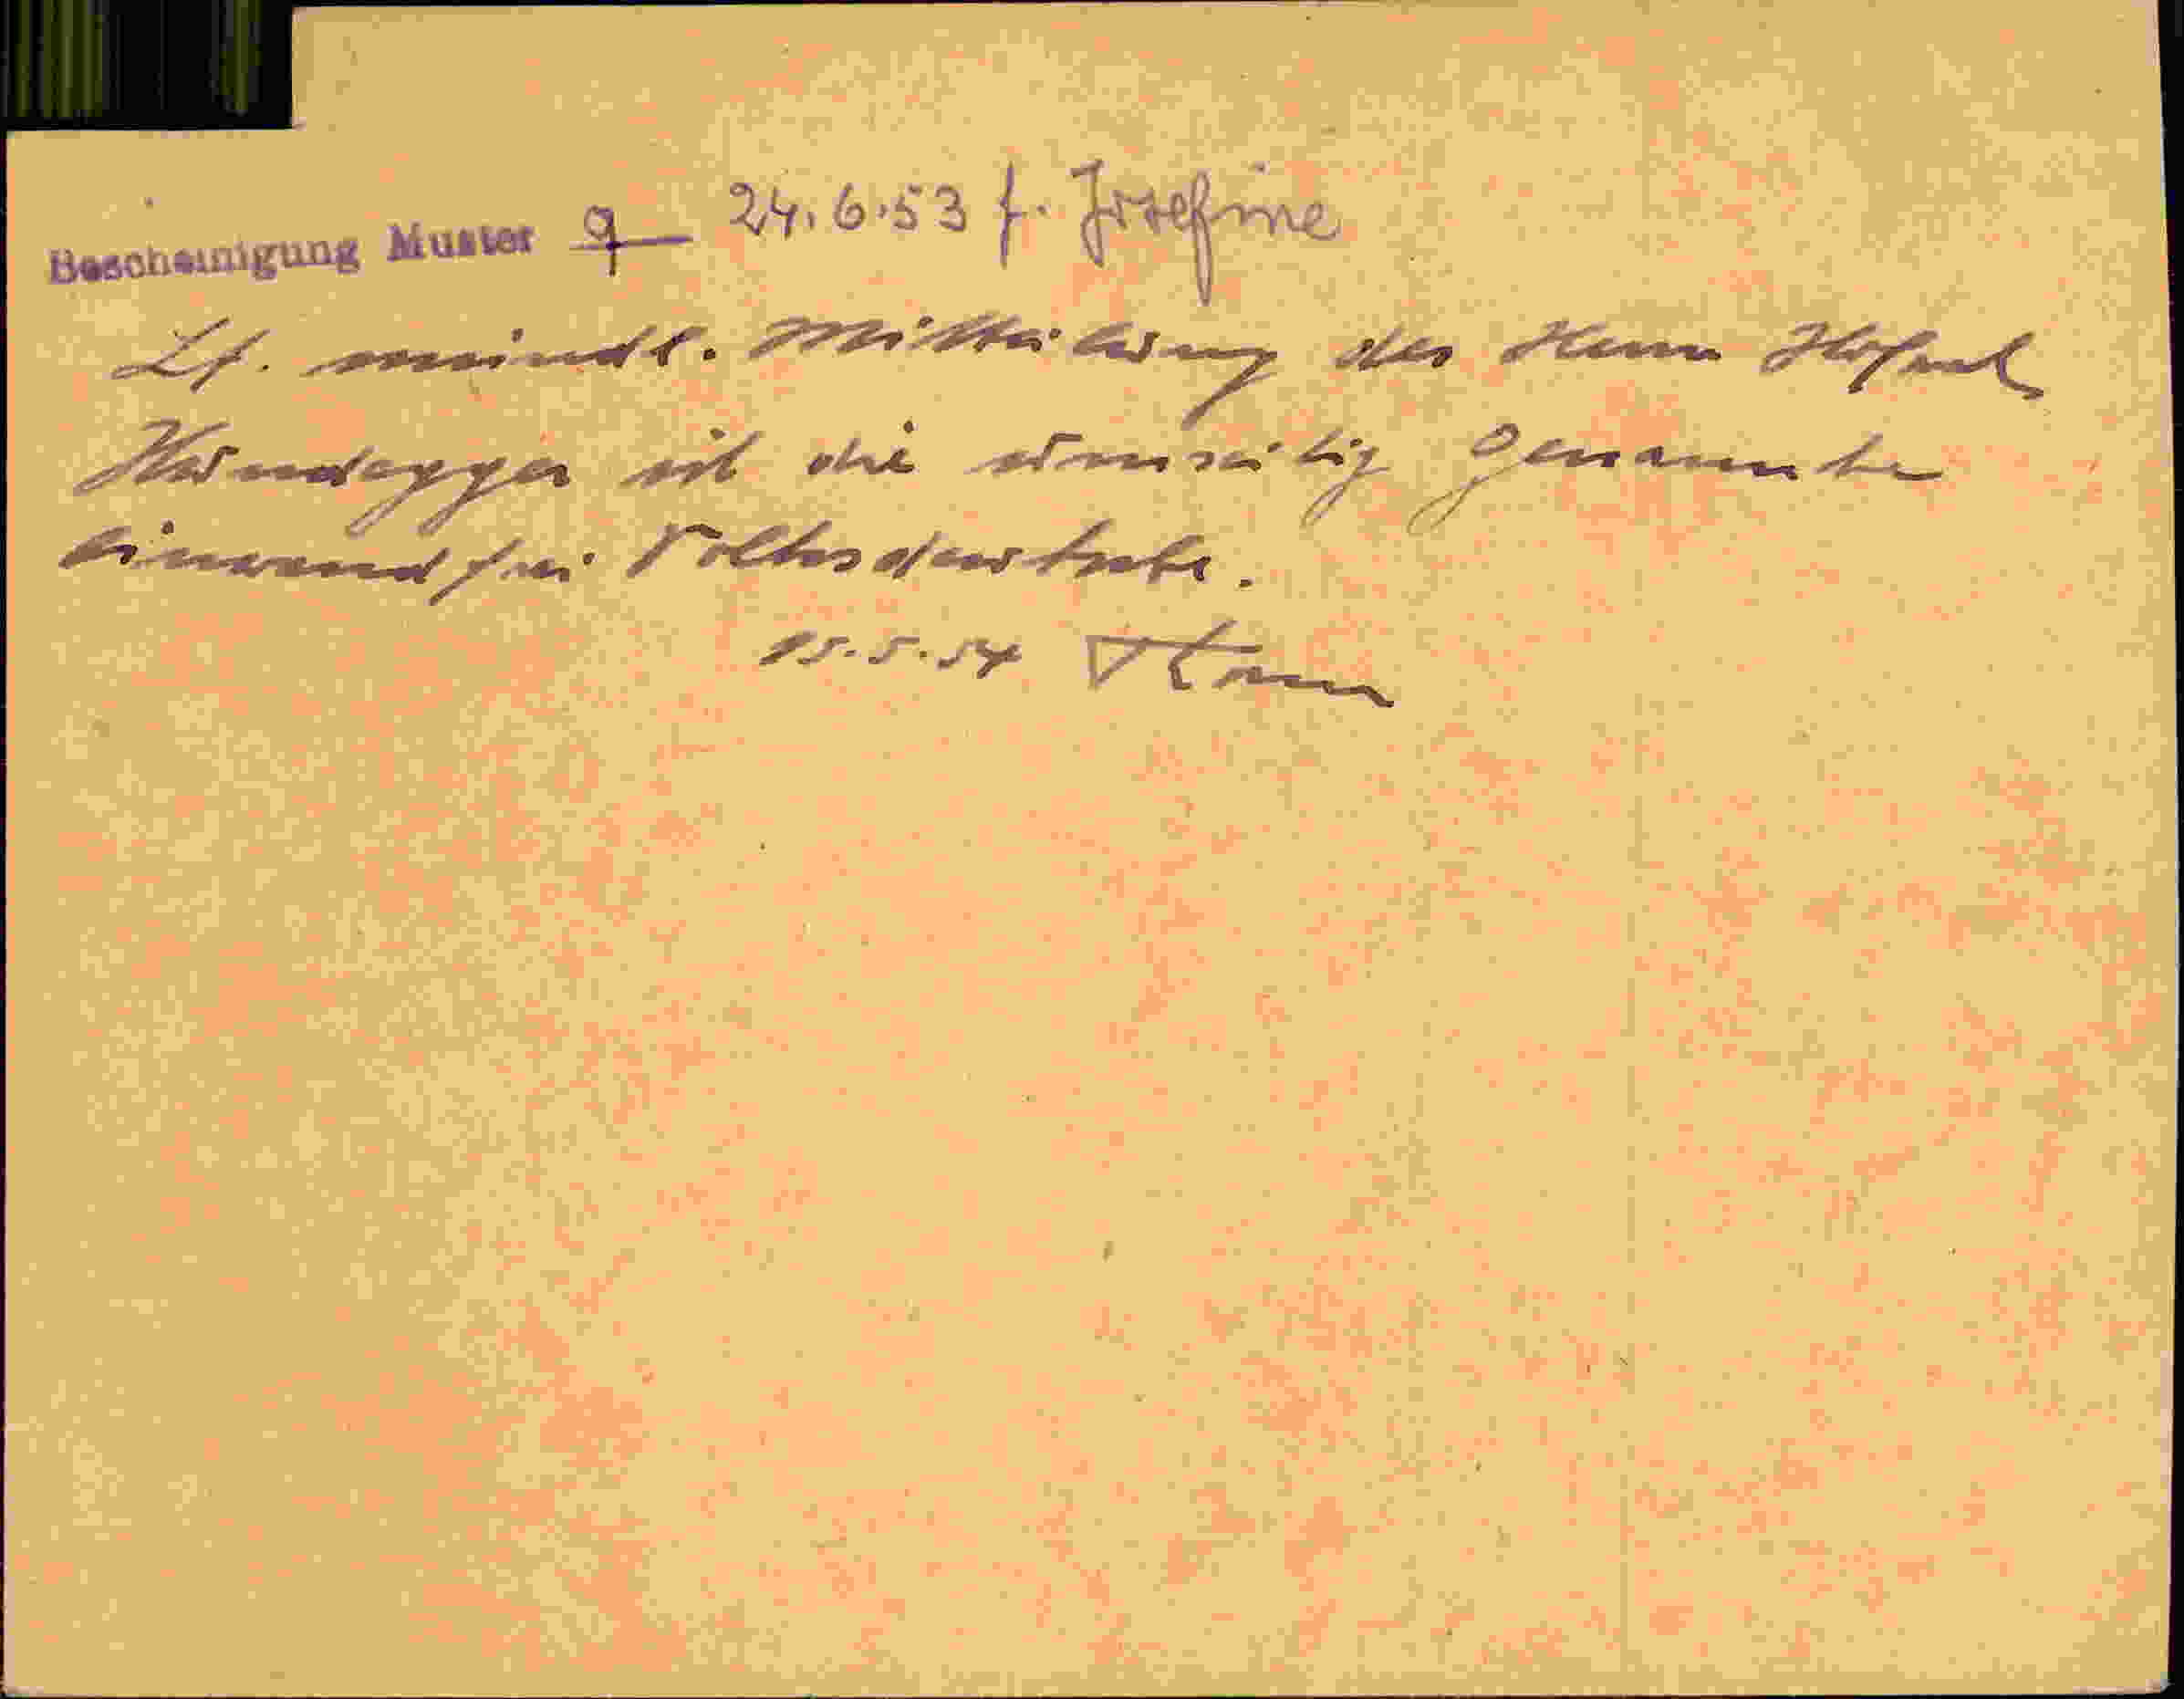 Bescheinigung Muster 9 24.6.53 f. Josefine
Lt. mündl. Mitteilung des Herrn Hofrat
Kundegger ist die umseitig Genannte
einwandfrei Volksdeutsche.
15.5.54